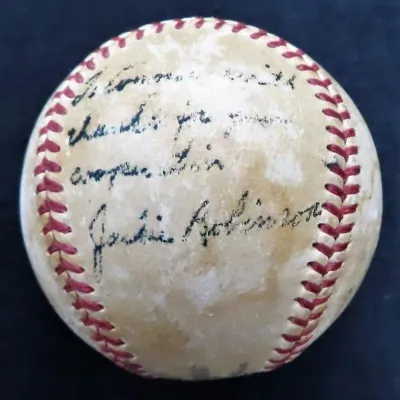 To Connie with
thanks for your
cooperation
Jackie Robinson